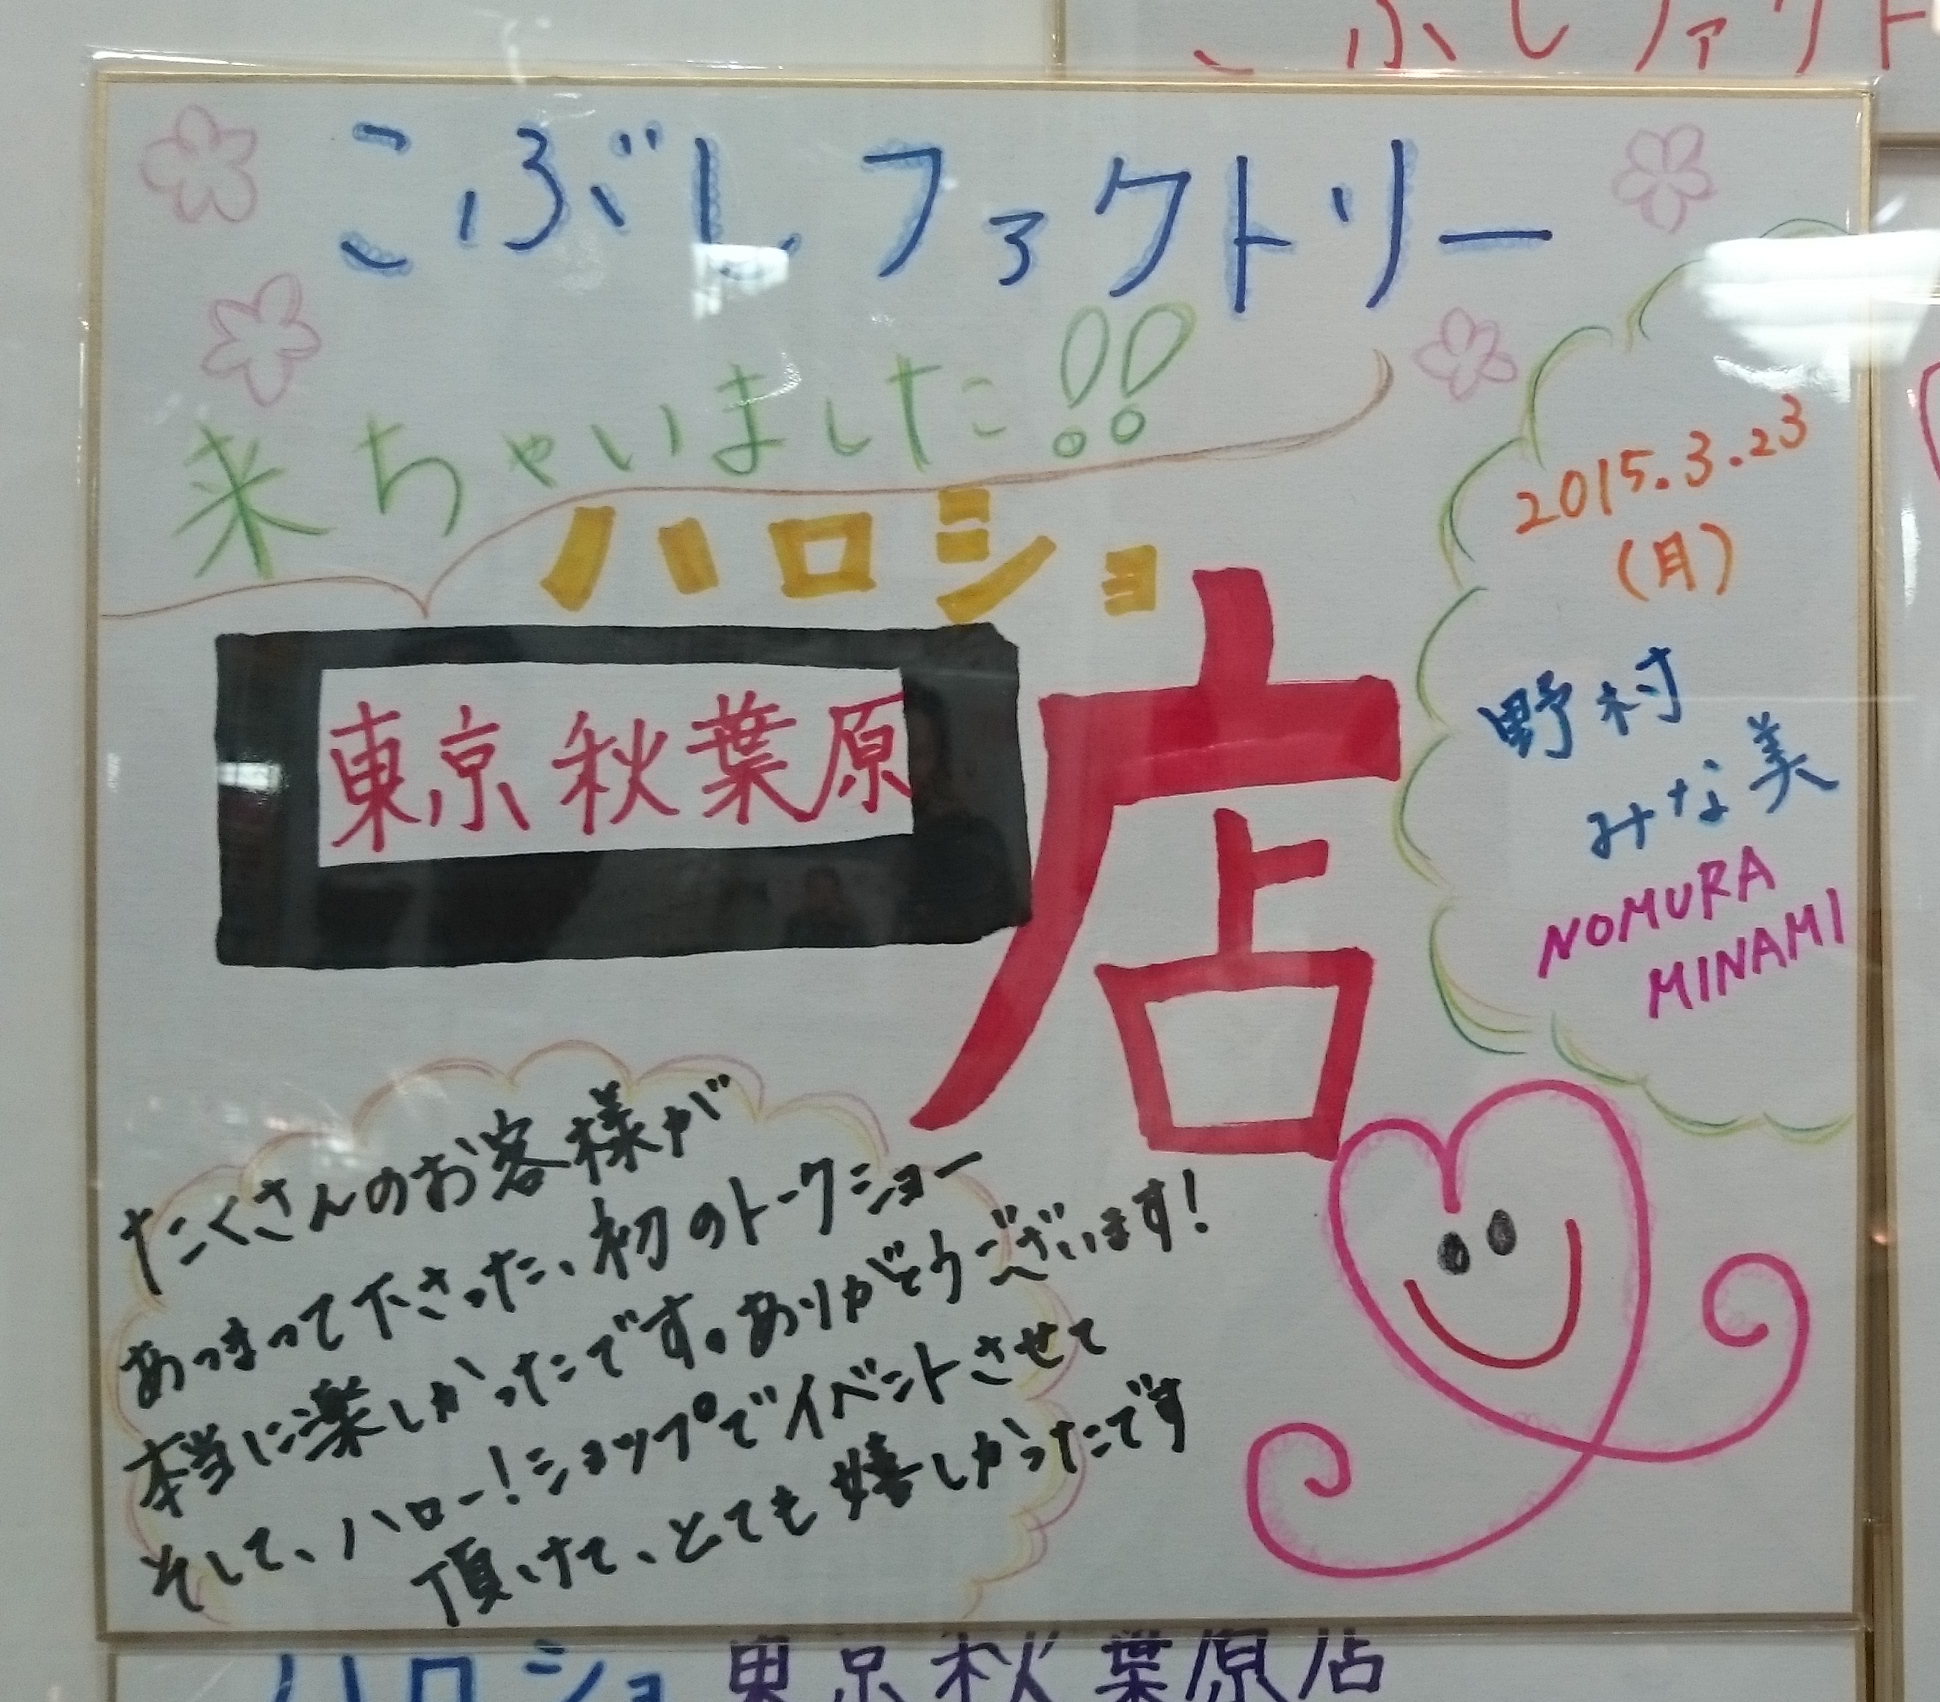 こぶしファクト
こぶしファクトリー
来ちゃいました!!
ハロショ
東京秋葉原
店
2015.3.23
(月)
野村
みな美
NOMURA
MINAMI
たくさんのお客様が
あつまって下さった、初のトークショー
本当に楽しかったです。ありがとうございます!
そして、ハロー!ショップでイベントさせて
頂けて、とても嬉しかったです
ハロショ 東京秋葉原店